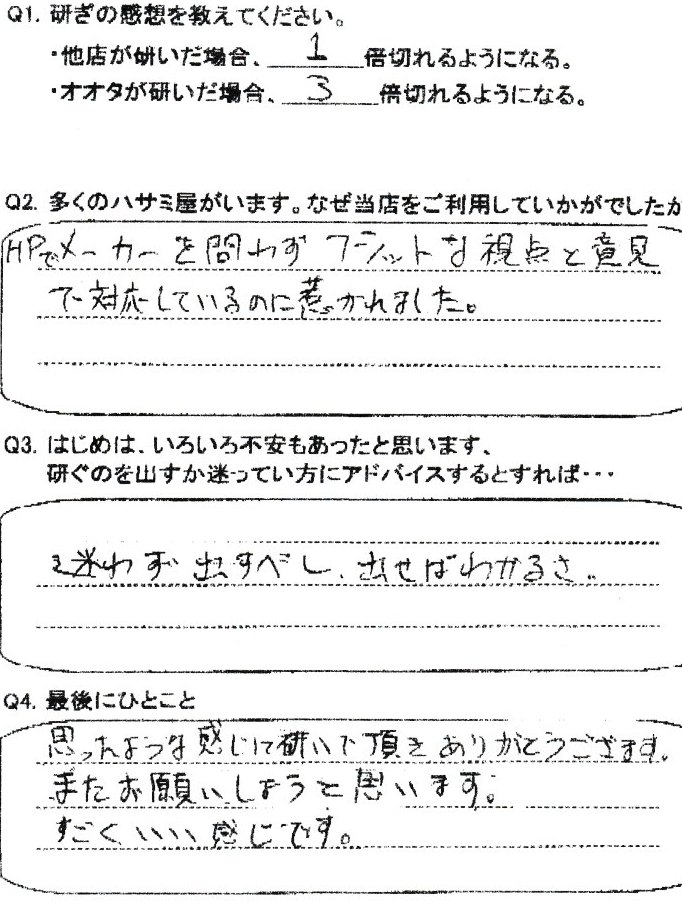 Q1. 研ぎの感想を教えてください。
・他店が研いだ場合、 1 倍切れるようになる。
・オオタが研いだ場合、 3 倍切れるようになる。
Q2. 多くのハサミ屋がいます。なぜ当店をご利用していかがでしたか
HPでメーカーを問わずフラットな視点と意見
で対応しているのに惹かれました。
Q3. はじめは、いろいろ不安もあったと思います、
研ぐのを出すか迷ってい方にアドバイスするとすれば・・・
迷わず出すべし、出せばわかるさ。
Q4. 最後にひとこと
思ったような感じに研いで頂きありがとうございます。
またお願いしようと思います。
すごくいい感じです。